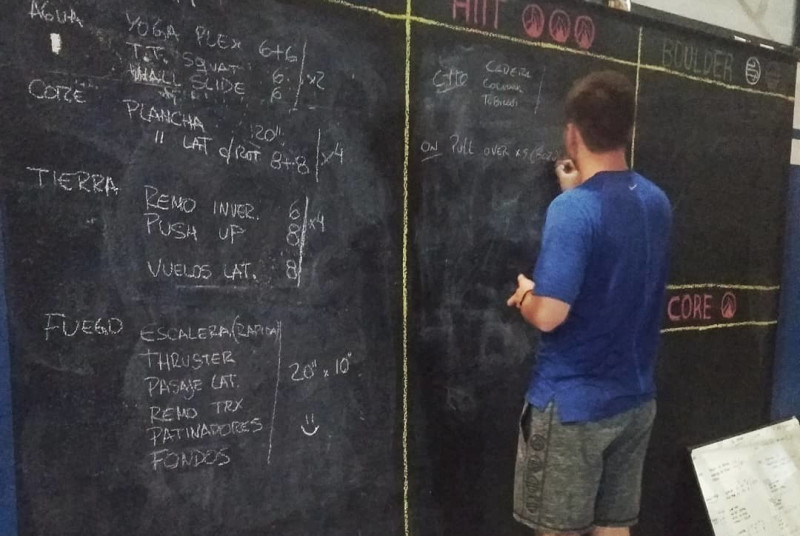 AGUA
YOGA PLEX 6+6
T.T. SQUAT 6 x2
WALL SLIDE 6
CORE
PLANCHA 120"
" LAT c/ROT 8+8 x4
TIERRA
REMO INVER. 6
PUSH UP 8 x4
VUELOS LAT. 8
FUEGO
ESCALERA (RAPIDA)
THRUSTER
PASAJE LAT. 20" x 10"
REMO TRX
PATINADORES
FONDOS
HIIT
CADERA
TOBILLO
ON PULL OVER x5
BOULDER
CORE